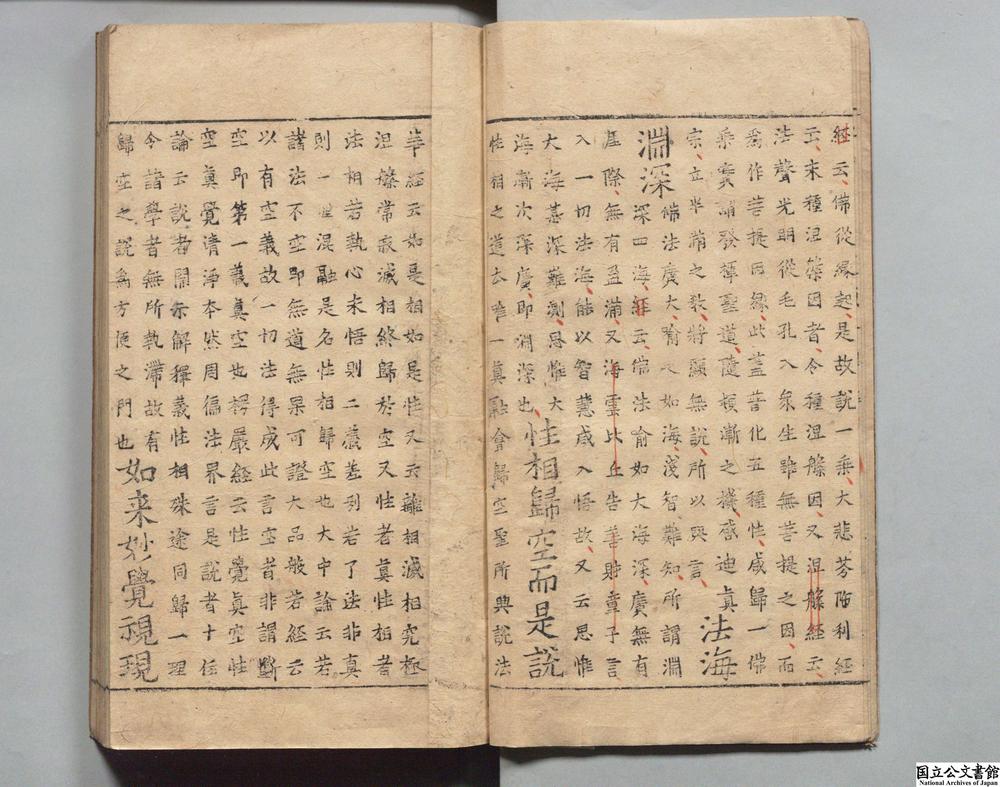 経云佛從縁起是故説一乗大悲芬陁利経
云未種涅槃因者令種涅槃因又涅槃経云
法聲光明從毛孔入衆生雖無菩提之因而
為作菩提因縁此盖普化五種性咸歸一佛
乗實誦發揮聖道隨頓漸之機感迪真
宗立半滿之教將顕無説所以興言法海
淵深佛法廣大喻如海淺智難知所謂淵
深四海経云佛法喻如大海深廣無有
崖際無有盈滿又海雲比丘告善財童子言
入一切法海能以智慧咸入悟故又云思惟
大海甚深難測思惟大
海漸次深廣即淵深也性相歸空而是説
性相之道本唯一真融會歸空聖所興説法
華経云如是相如是性又云離相滅相究極
涅槃常寂滅相終歸於空又性者真性相者
法相若執心未悟則二義差別若了法非真
則一理混融是名性相歸空也大中論云若
諸法不空即無道無果可證大品般若経云
以有空義故一切法得成此言空者非謂斷
空即第一義真空也楞嚴経云性覺真空性
空真覺清淨本然周徧法界言是説者十住
論云説者開示解釋義性相殊途同歸一理
今諸學者無所執滯故有
歸空之説為方便之門也如来妙覺視現
国立公文書館
National Archives of Japan